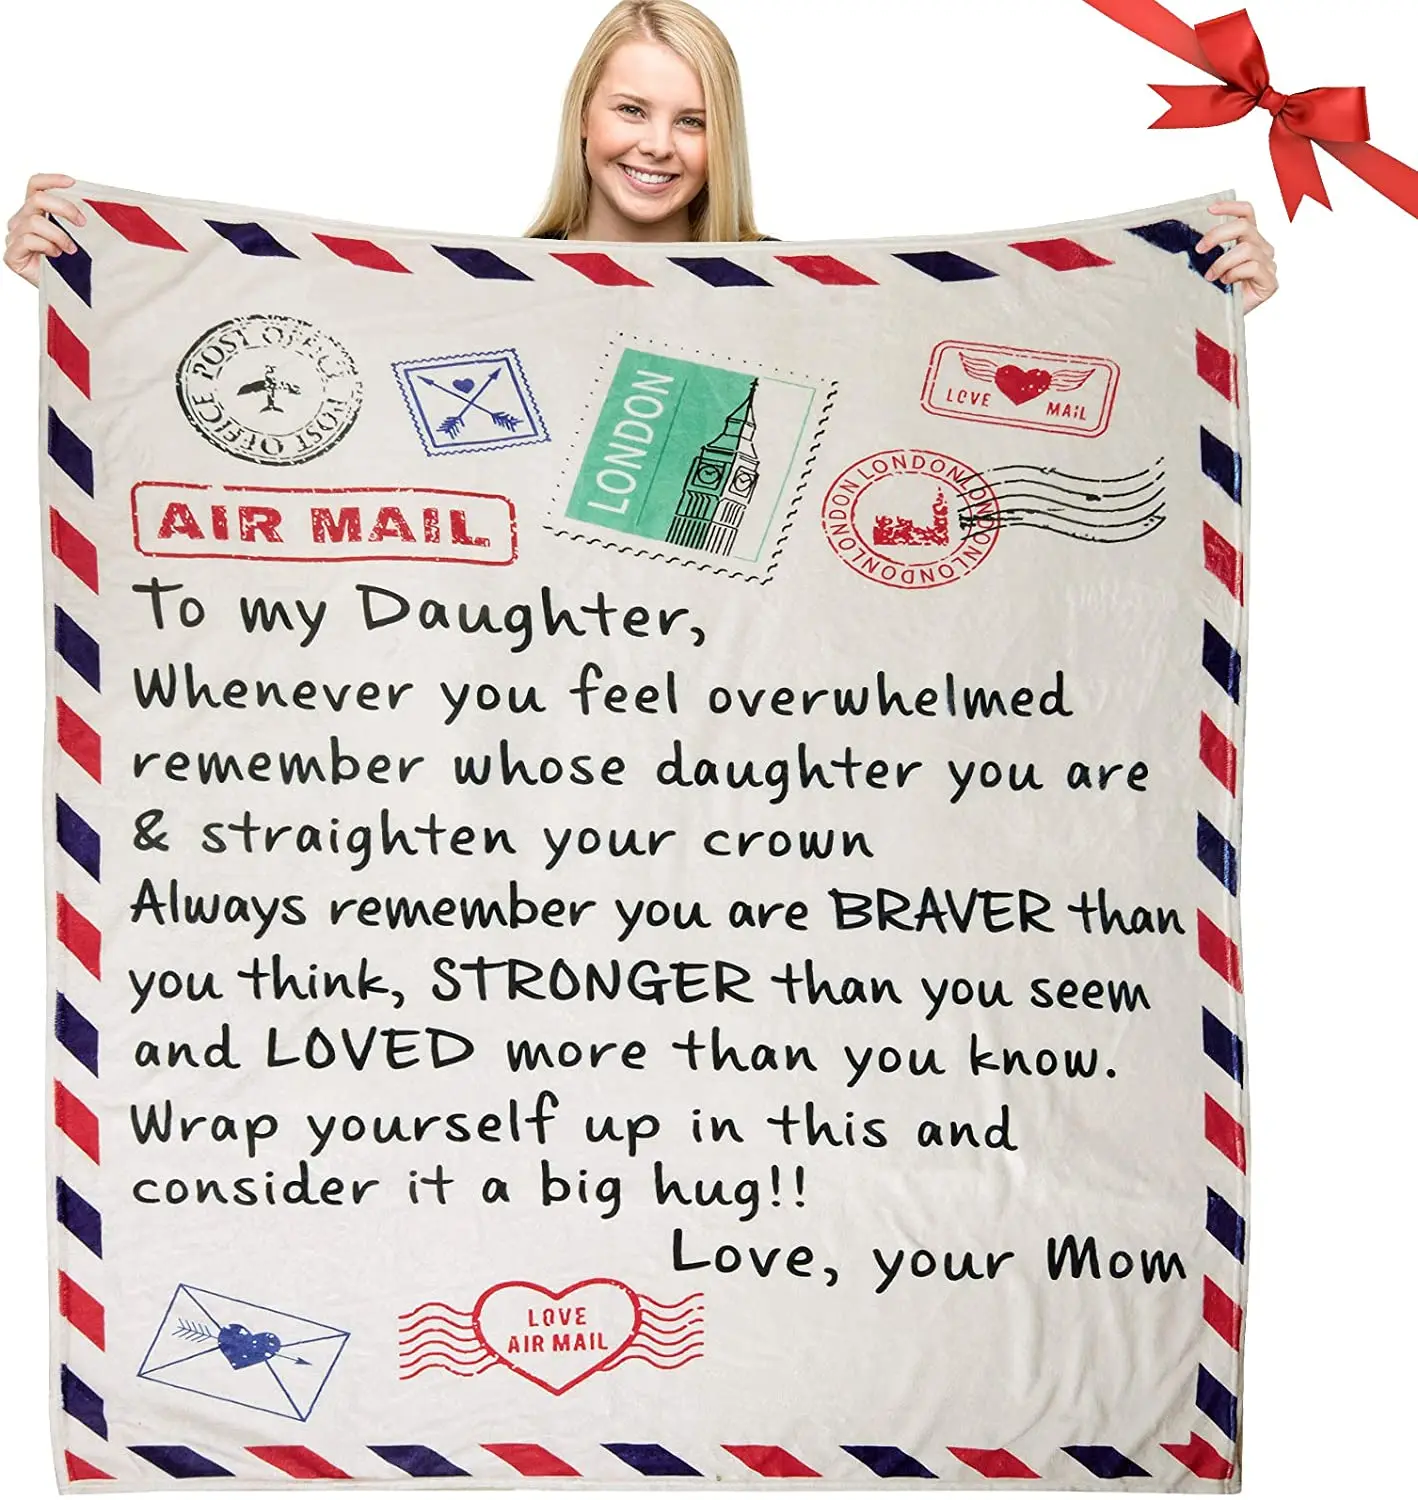 POST OFFICE POST OFFICE
LONDON
LOVE MAIL
AIR MAIL
LONDON LONDON LONDON LONDON
To my Daughter,
Whenever you feel overwhelmed
remember whose daughter you are
& straighten your crown
Always remember you are BRAVER than
you think, STRONGER than you seem
and LOVED more than you know.
Wrap yourself up in this and
consider it a big hug!!
Love, your Mom
LOVE
AIR MAIL